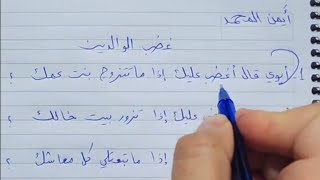 أيمن المحمد
غضب الوالدين
1. أبوي قال أغضب عليك إذا ما تتزوج بنت عمك ؟
عليك إذا تزور بيت خالك ؟
إذا ما تبعتلي كل معاشك ؟